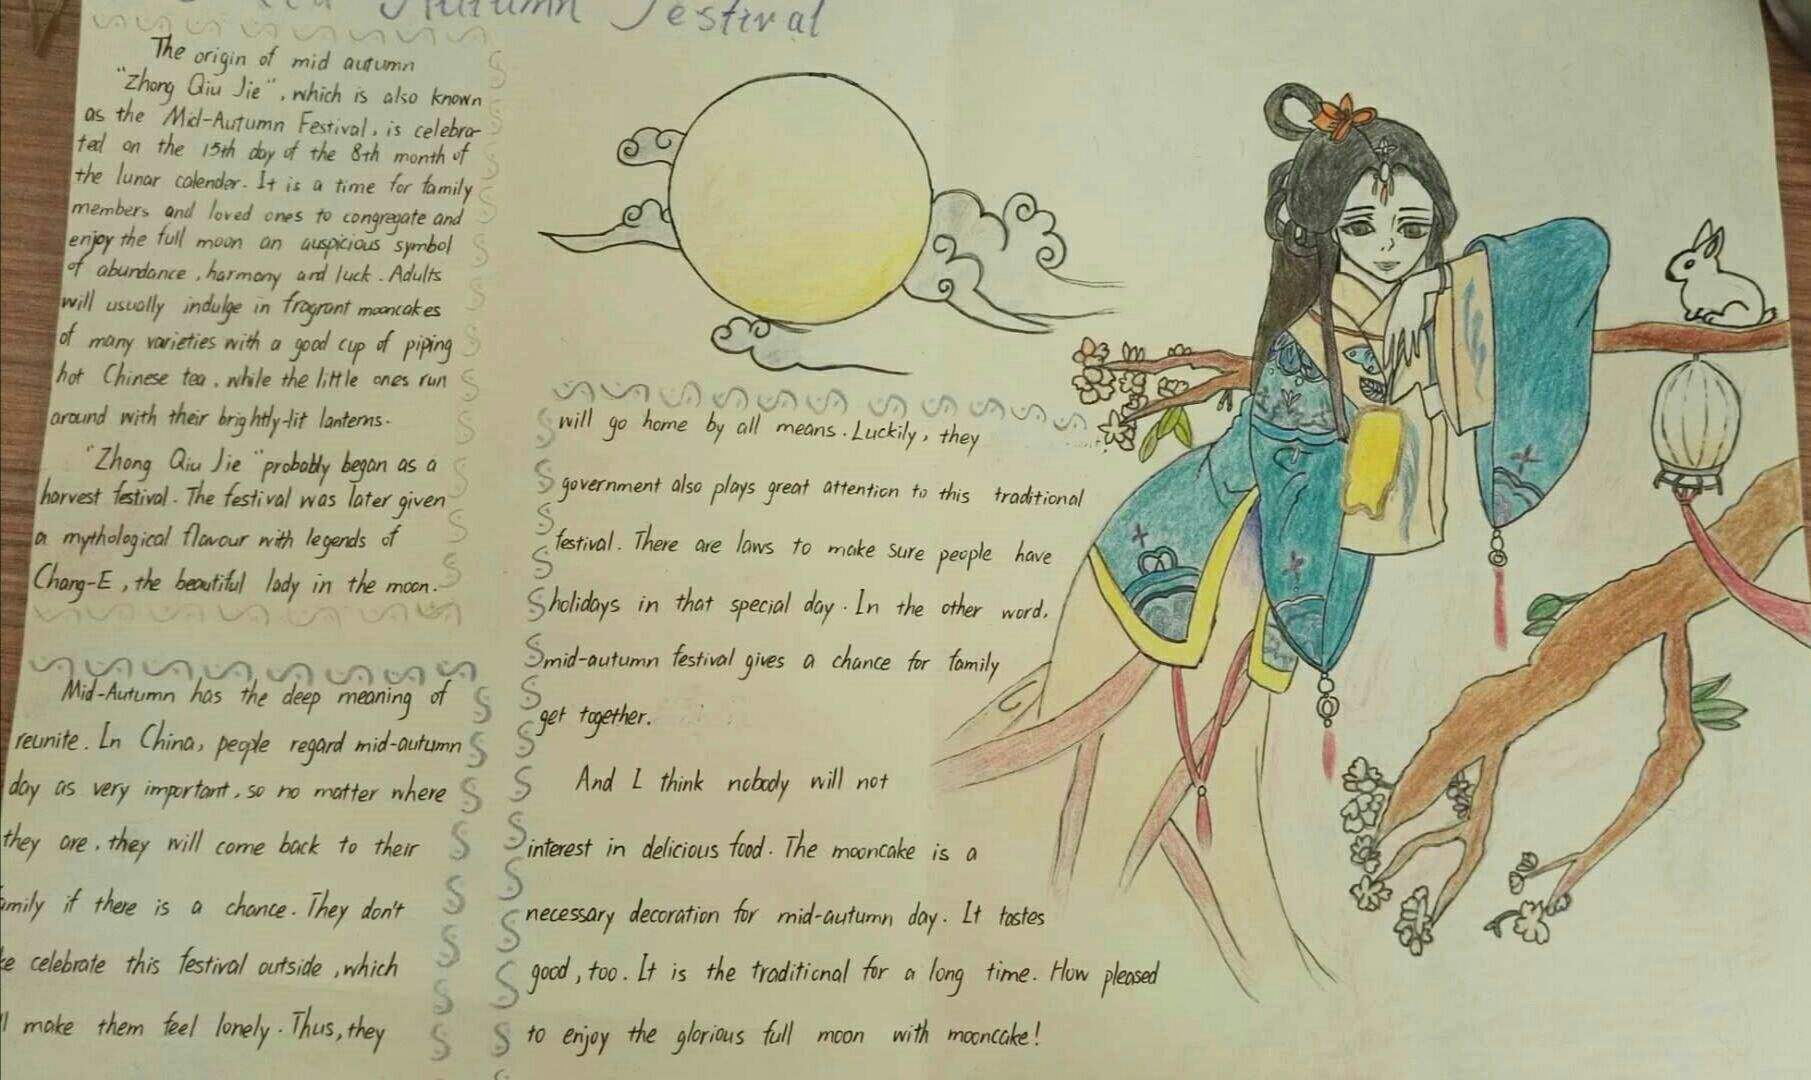 Autumn Festival
The origin of mid autumn
"Zhong Qiu Jie", which is also known
as the Mid-Autumn Festival, is celebra-
ted on the 15th day of the 8th month of
the lunar calender. It is a time for family
members and loved ones to congregate and
enjoy the full moon an auspicious symbol
of abundance, harmony and luck. Adults
will usually indulge in fragrant mooncakes
of many varieties with a good cup of piping
hot Chinese tea, while the little ones run
around with their brightly-lit lanterns.
"Zhong Qiu Jie" probably began as a
harvest festival. The festival was later given
a mythological flavour with legends of
Chang-E, the beautiful lady in the moon.
Mid-Autumn has the deep meaning of
reunite. In China, people regard mid-autumn
day as very important, so no matter where
they are, they will come back to their
amily if there is a chance. They don't
ke celebrate this festival outside, which
ll make them feel lonely. Thus, they
will go home by all means. Luckily, they
government also plays great attention to this traditional
festival. There are laws to make sure people have
holidays in that special day. In the other word,
mid-autumn festival gives a chance for family
get together.
And I think nobody will not
interest in delicious food. The mooncake is a
necessary decoration for mid-autumn day. It tastes
good, too. It is the traditional for a long time. How pleased
to enjoy the glorious full moon with mooncake!